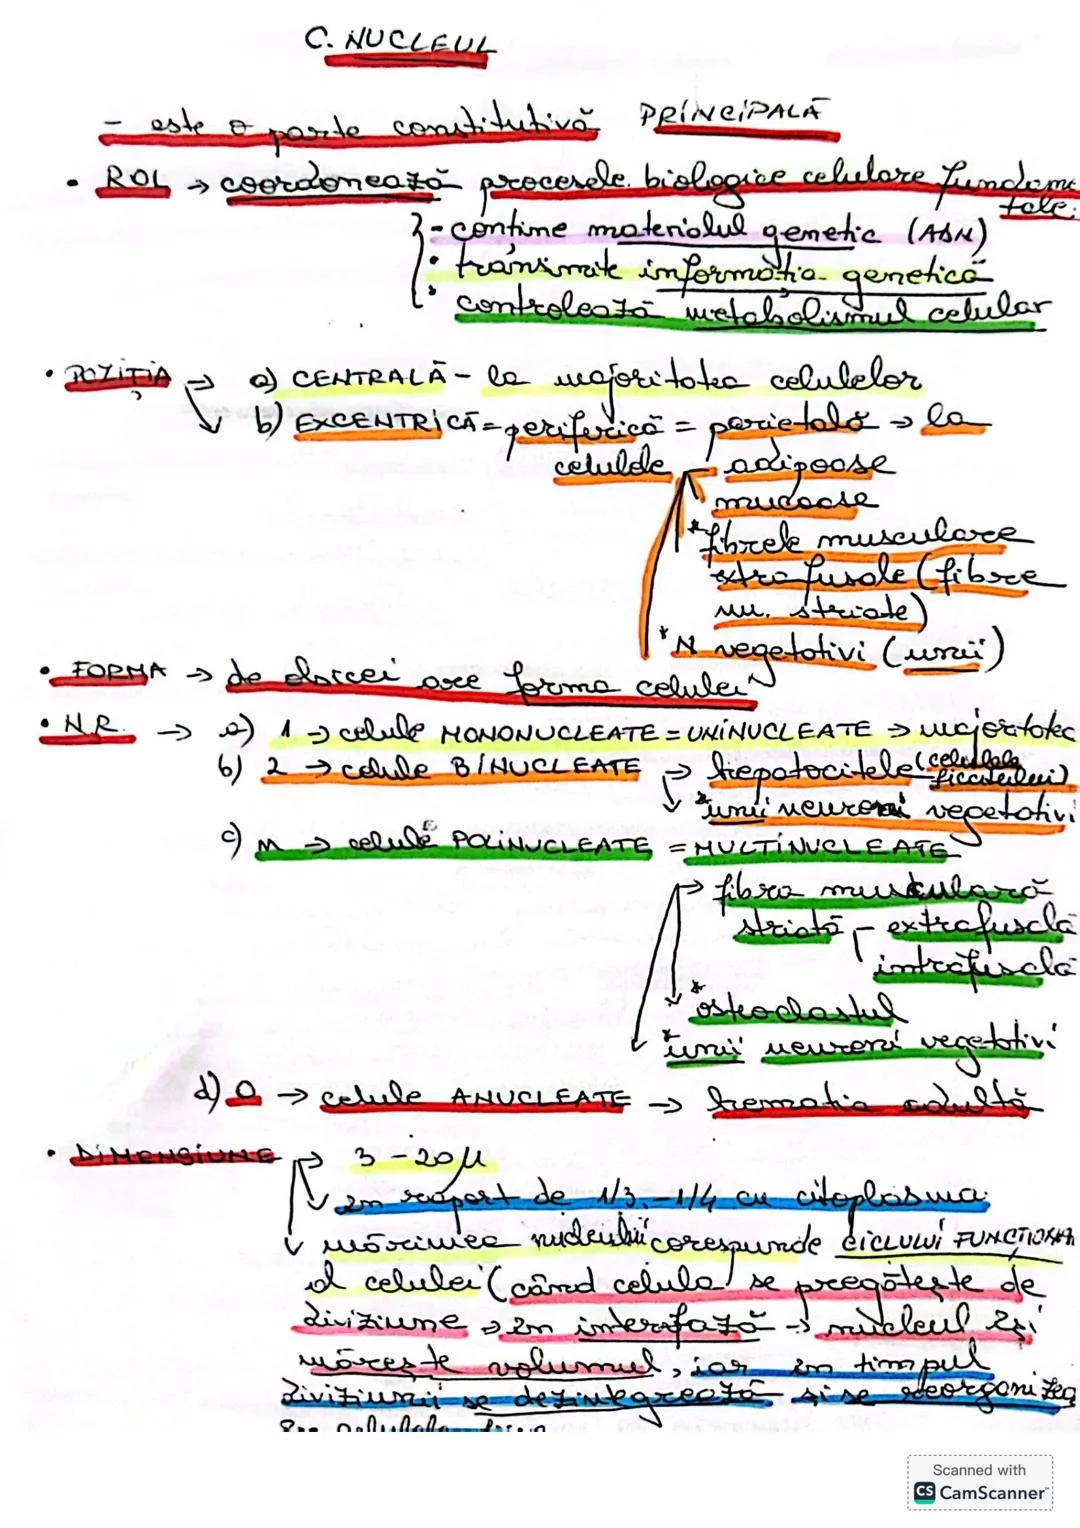 C. NUCLEUL
- este o parte constitutivă PRINCIPALĂ
• ROL → coordonează procesele biologice celulare fundame
tale:
- conține materialul genetic (ADN)
• transmite informația genetică
• controlează metabolismul celular
• POZIȚIA → a) CENTRALĂ - la majoritatea celulelor
b) EXCENTRICĂ = periferică = parietală → la
celulele adipoase
mucoase
* fibrele musculare
extrafusale (fibre
m. striate)
* N vegetativi (unii)
• FORMA → de obicei are forma celulei
• NR. → a) 1 → celule MONONUCLEATE = UNINUCLEATE → majoritatea
b) 2 → celule BINUCLEATE → hepatocitele (celulele
ficatului)
* unii neuroni vegetativi
c) m → celule POLINUCLEATE = MULTINUCLEATE
→ fibra musculară
striată - extrafusală
intrafusală
* osteoclastul
* unii neuroni vegetativi
d) 0 → celule ANUCLEATE → hematia adultă
• DIMENSIUNE → 3 - 20 µ
în raport de 1/3 - 1/4 cu citoplasma
mărimea nucleului corespunde CICLULUI FUNCȚIONA
al celulei (când celula se pregătește de
diviziune → în interfază → nucleul își
mărește volumul, iar în timpul
diviziunii se dezintegrează și se reorganizea
Scanned with
CS CamScanner